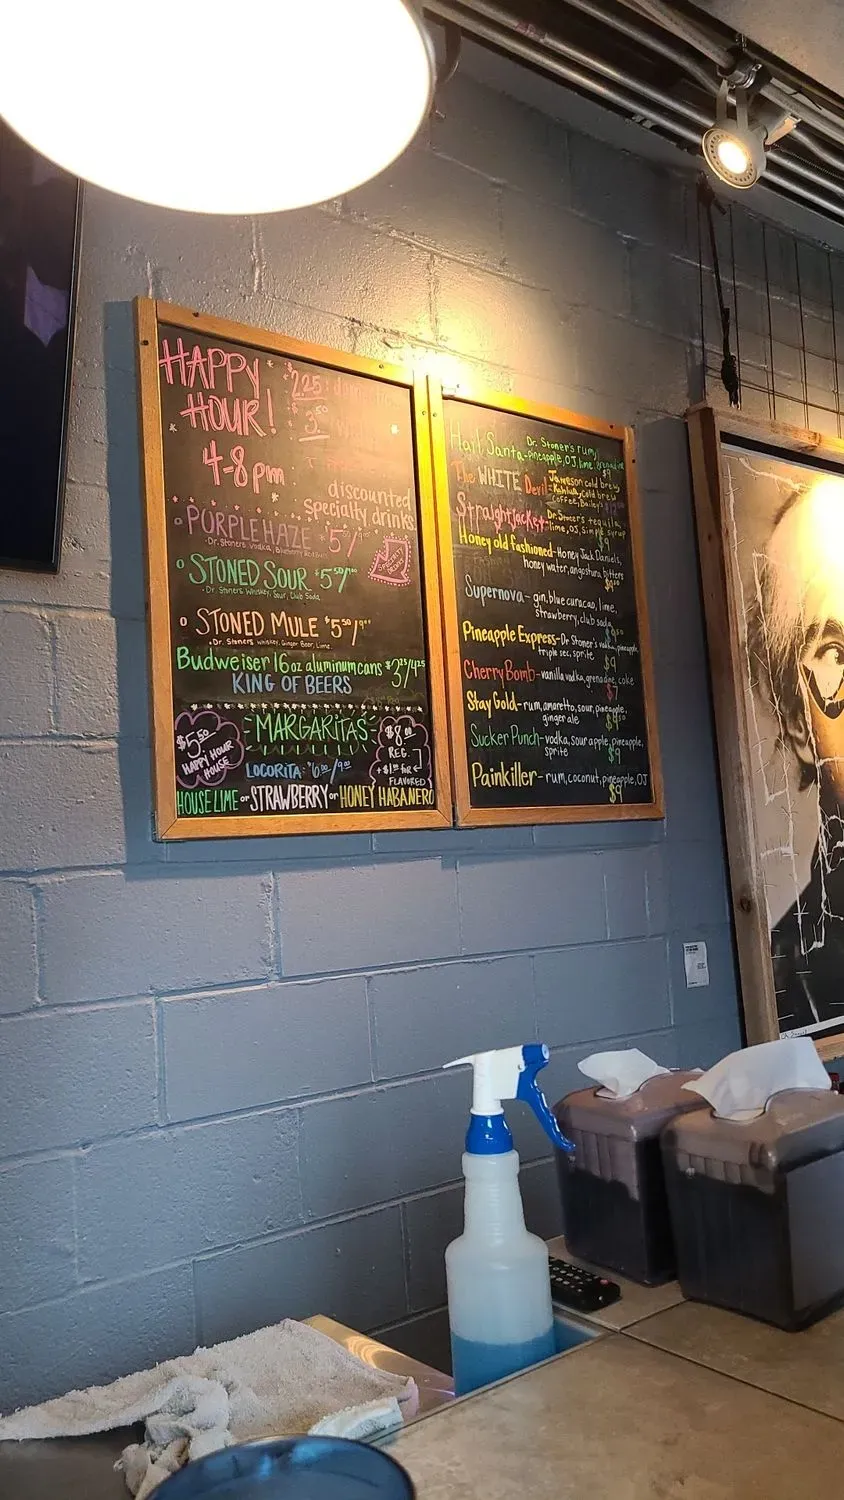 HAPPY
HOUR!
4-8pm
2.25:
3.50
discounted
specialty drinks
PURPLE HAZE $5/
SPECIALTY
DRINKS
STONED SOUR $5/
Dr. Stoners Whiskey, Sour, Club Soda
STONED MULE $5.50/
Dr. Stoners Whiskey, Ginger Beer, Lime
Budweiser 16oz aluminum cans $3.25/4.25
KING OF BEERS
MARGARITAS
$5.50
HAPPY HOUR
HOUSE
$8.00
REG.
FLAVORED
LOCORITA:
HOUSE LIME or STRAWBERRY or HONEY HABANERO
Hail Santa- Dr. Stoner's rum,
pineapple, OJ, lime, grenadine
$9
The WHITE Devil- Jameson cold brew
Kahlua, cold brew
coffee, Bailey's
Straightjacket- Dr. Stoners tequila,
lime, OJ, simple syrup
$9
Honey old fashioned- Honey Jack Daniels,
honey water, angostura, bitters
Supernova- gin, blue curacao, lime,
strawberry, club soda
Pineapple Express- Dr Stoner's vodka, pineapple,
triple sec, sprite
$9
Cherry Bomb- vanilla vodka, grenadine, coke
$7
Stay Gold- rum, amaretto, sour, pineapple,
ginger ale
Sucker Punch- vodka, sour apple, pineapple,
sprite
$9
Painkiller- rum, coconut, pineapple, OJ
$9